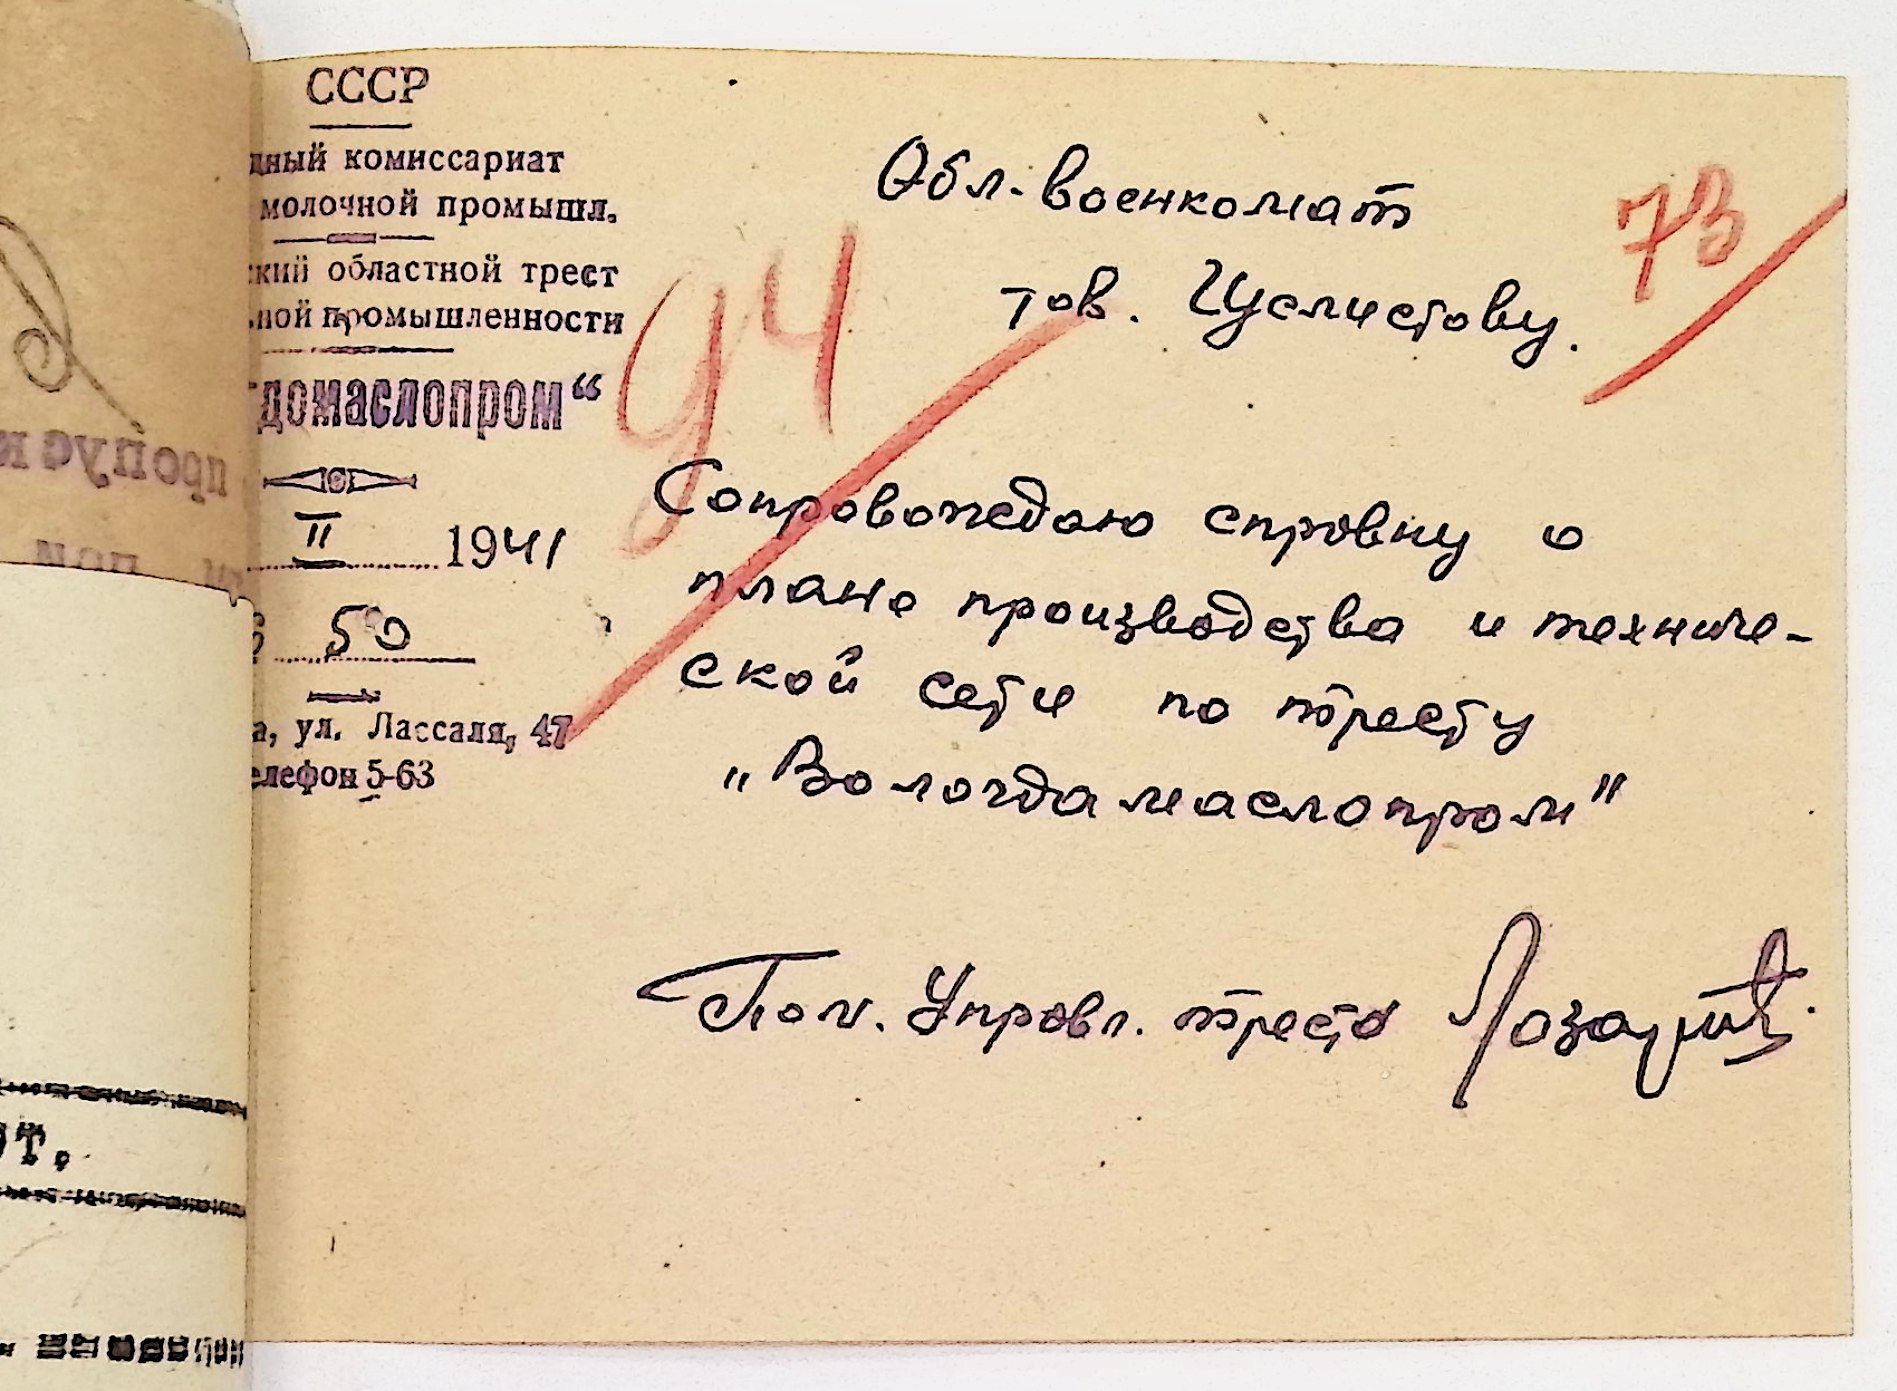 СССР
дный комиссариат
молочной промышл.
ский областной трест
ьной промышленности
домаслопром“
II 1941
50
а, ул. Лассаля, 47
елефон 5-63
94
73
Обл-военкомат
тов.
Сопровождаю справку о
плане производства и техниче-
ской сети по тресту
„Вологдамаслопром"
Пом. Управл. треста
пропуск
от.